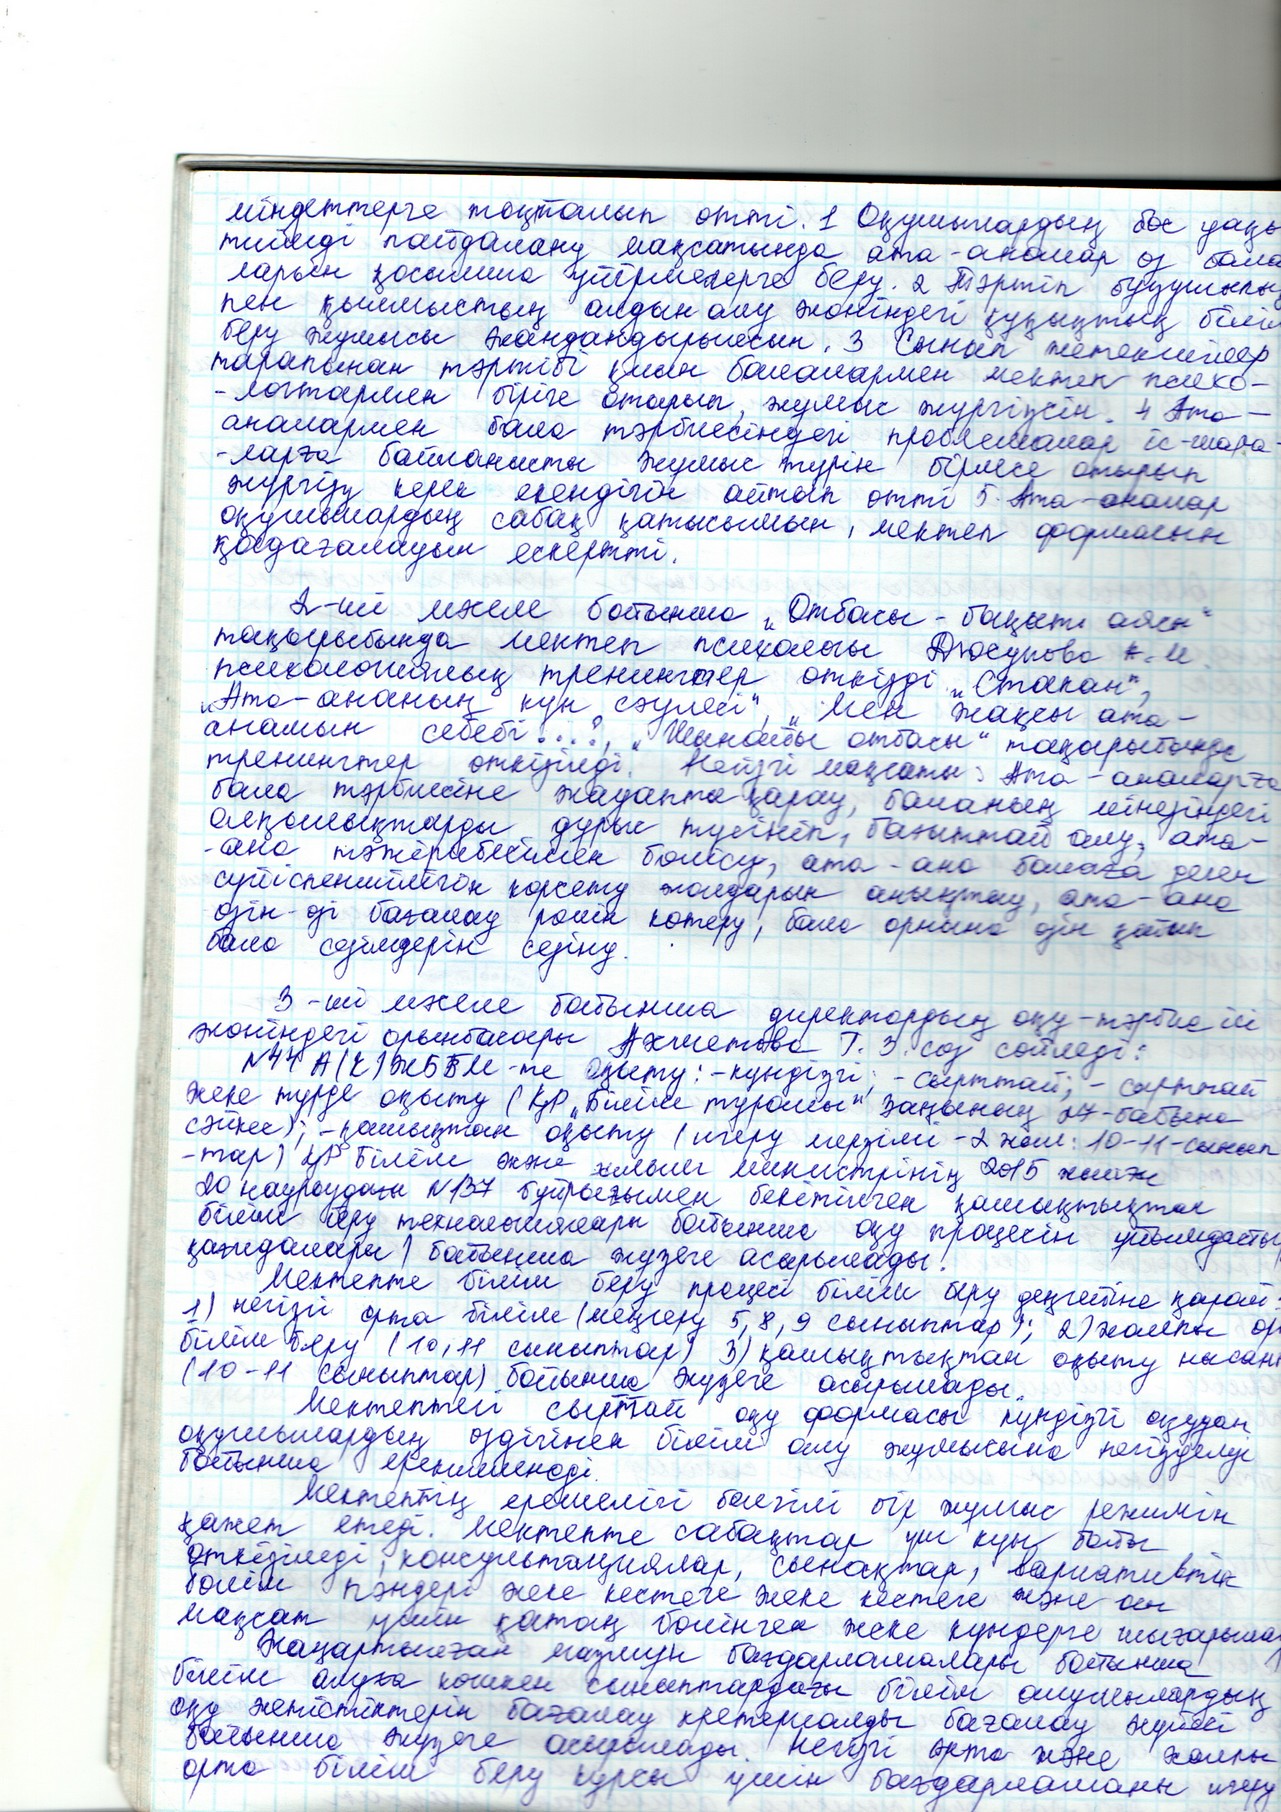 міндеттерге тоқталып өтті. 1 Оқушылардың бос уақы
тиімді пайдалану мақсатында ата-аналар өз бала
ларын қосымша үйірмелерге беру. 2 Тәртіп бұзушылық
пен қылмыстың алдын алу жөніндегі құқықтық білім
беру жұмысы жандандырылсын. 3 Сынып жетекшілер
тарапынан тәртібі қиын балалармен мектеп психо-
-логтармен бірге отырып, жұмыс жүргізсін. 4 Ата-
аналармен бала тәрбиесіндегі проблемалар іс-шара
-ларға байланысты жұмыс түрін бірлесе отырып
жүргізу керек екендігін айтып өтті 5. Ата-аналар
оқушылардың сабақ қатысымын, мектеп формасын
қадағалауын ескертті.
2-ші мәселе бойынша „Отбасы - бақыт аясы"
тақырыбында мектеп психологы Дюсупова А.М.
психологиялық тренингтер өткізді. „Стакан",
„Ата-ананың күн сәулесі", „Мен жақсы ата-
анамын себебі...?, „Шынайы отбасы" тақырыбында
тренингтер өткізілді. Негізгі мақсаты: Ата-аналарға
бала тәрбиесіне жауапты қарау, баланың мінезіндегі
олқылықтарды дұрыс түсініп, бағыттай алу, ата-
-ана тәжірибесімен бөлісу, ата-ана балаға деген
сүйіспеншілігін көрсету жолдарын анықтау, ата-ана
өзін-өзі бағалау рөлін көтеру, бала орнына өзін қойып
бала сезімдерін сезіну.
3-ші мәселе бойынша директордың оқу-тәрбие ісі
жөніндегі орынбасары Ахметова Г. З. сөз сөйледі:
№44 А(К)ЖББМ-те оқыту: -күндізгі; -сырттай; - сырттай
жеке түрде оқыту (ҚР „Білім туралы" Заңының 27-бабына
сәйкес); -қашықтан оқыту (игеру мерзімі -2 жыл: 10-11-сынып
-тар) ҚР Білім және ғылым министрінің 2015 жылғы
20 наурыздағы №137 бұйрығымен бекітілген қашықтықтан
білім беру технологиялары бойынша оқу процесін ұйымдасты
қағидалары) бойынша жүзеге асырылады.
Мектепте білім беру процесі білім беру деңгейіне қарай:
1) негізгі орта білім (меңгеру 5, 8, 9 сыныптар); 2) жалпы ор
білім беру (10, 11 сыныптар) 3) қашықтықтан оқыту нысаны
(10-11 сыныптар) бойынша жүзеге асырылады.
Мектептегі сырттай оқу формасы күндізгі оқудан
оқушылардың өздігінен білім алу жұмысына негізделуі
бойынша ерекшеленеді.
Мектептің ерекшелігі белгілі бір жұмыс режимін
қажет етеді. Мектепте сабақтар үш күн бойы
өткізіледі, консультациялар, сынақтар, вариативтік
бөлім пәндері жеке кестеге жеке кестеге және осы
мақсат үшін қатаң бөлінген жеке күндерге шығарыла
Жаңартылған мазмұн бағдарламалары бойынша
білім алуға көшкен сыныптардағы білім алушылардың
оқу жетістіктерін бағалау критериалды бағалау жүйесі
бойынша жүзеге асырылады. Негізгі орта және жалпы
орта білім беру курсы үшін бағдарламаны игеру